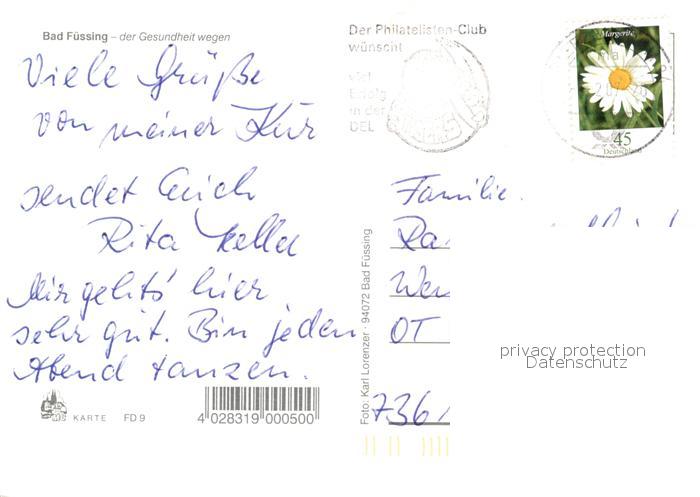 Bad Füssing – der Gesundheit wegen
Viele Grüße
von meiner Kur
sendet Euch
Rita Keller
Mir geht's hier
sehr gut. Bin jeden
Abend tanzen.
KARTE FD 9
4 028319 000500
Foto: Karl Lorenzer · 94072 Bad Füssing
Der Philatelisten-Club
wünscht
viel
Erfolg
in der
DEL
Margerite
45
Deutschland
Familie
OT
privacy protection
Datenschutz